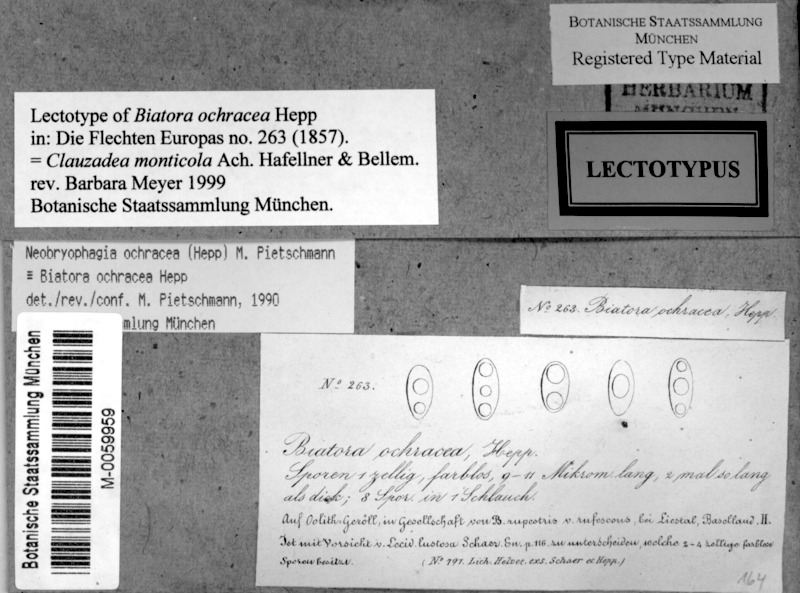 BOTANISCHE STAATSSAMMLUNG
MÜNCHEN
Registered Type Material
HERBARIUM
MÜNCHEN
LECTOTYPUS
Lectotype of Biatora ochracea Hepp
in: Die Flechten Europas no. 263 (1857).
= Clauzadea monticola Ach. Hafellner & Bellem.
rev. Barbara Meyer 1999
Botanische Staatssammlung München.
Neobryophagia ochracea (Hepp) M. Pietschmann
≡ Biatora ochracea Hepp
det./rev./conf. M. Pietschmann, 1990
mlung München
No 263. Biatora ochracea, Hepp.
Botanische Staatssammlung München
M-0059959
No 263.
Biatora ochracea, Hepp.
Sporen 1 zellig, farblos, 9-11 Mikrom lang, 2 mal so lang
als dick; 8 Spor. in 1 Schlauch.
Auf Oolith-Geröll, in Gesellschaft von B. rupestris v. rufescens, bei Liestal, Baselland. H.
Ist mit Vorsicht v. Lecid. lustosa Schaer. En. p. 116. zu unterscheiden, welche 2-4 zellige farblose
Sporen besitzt. (No 797. Lich. Helvet. exs. Schaer et Hepp.)
164